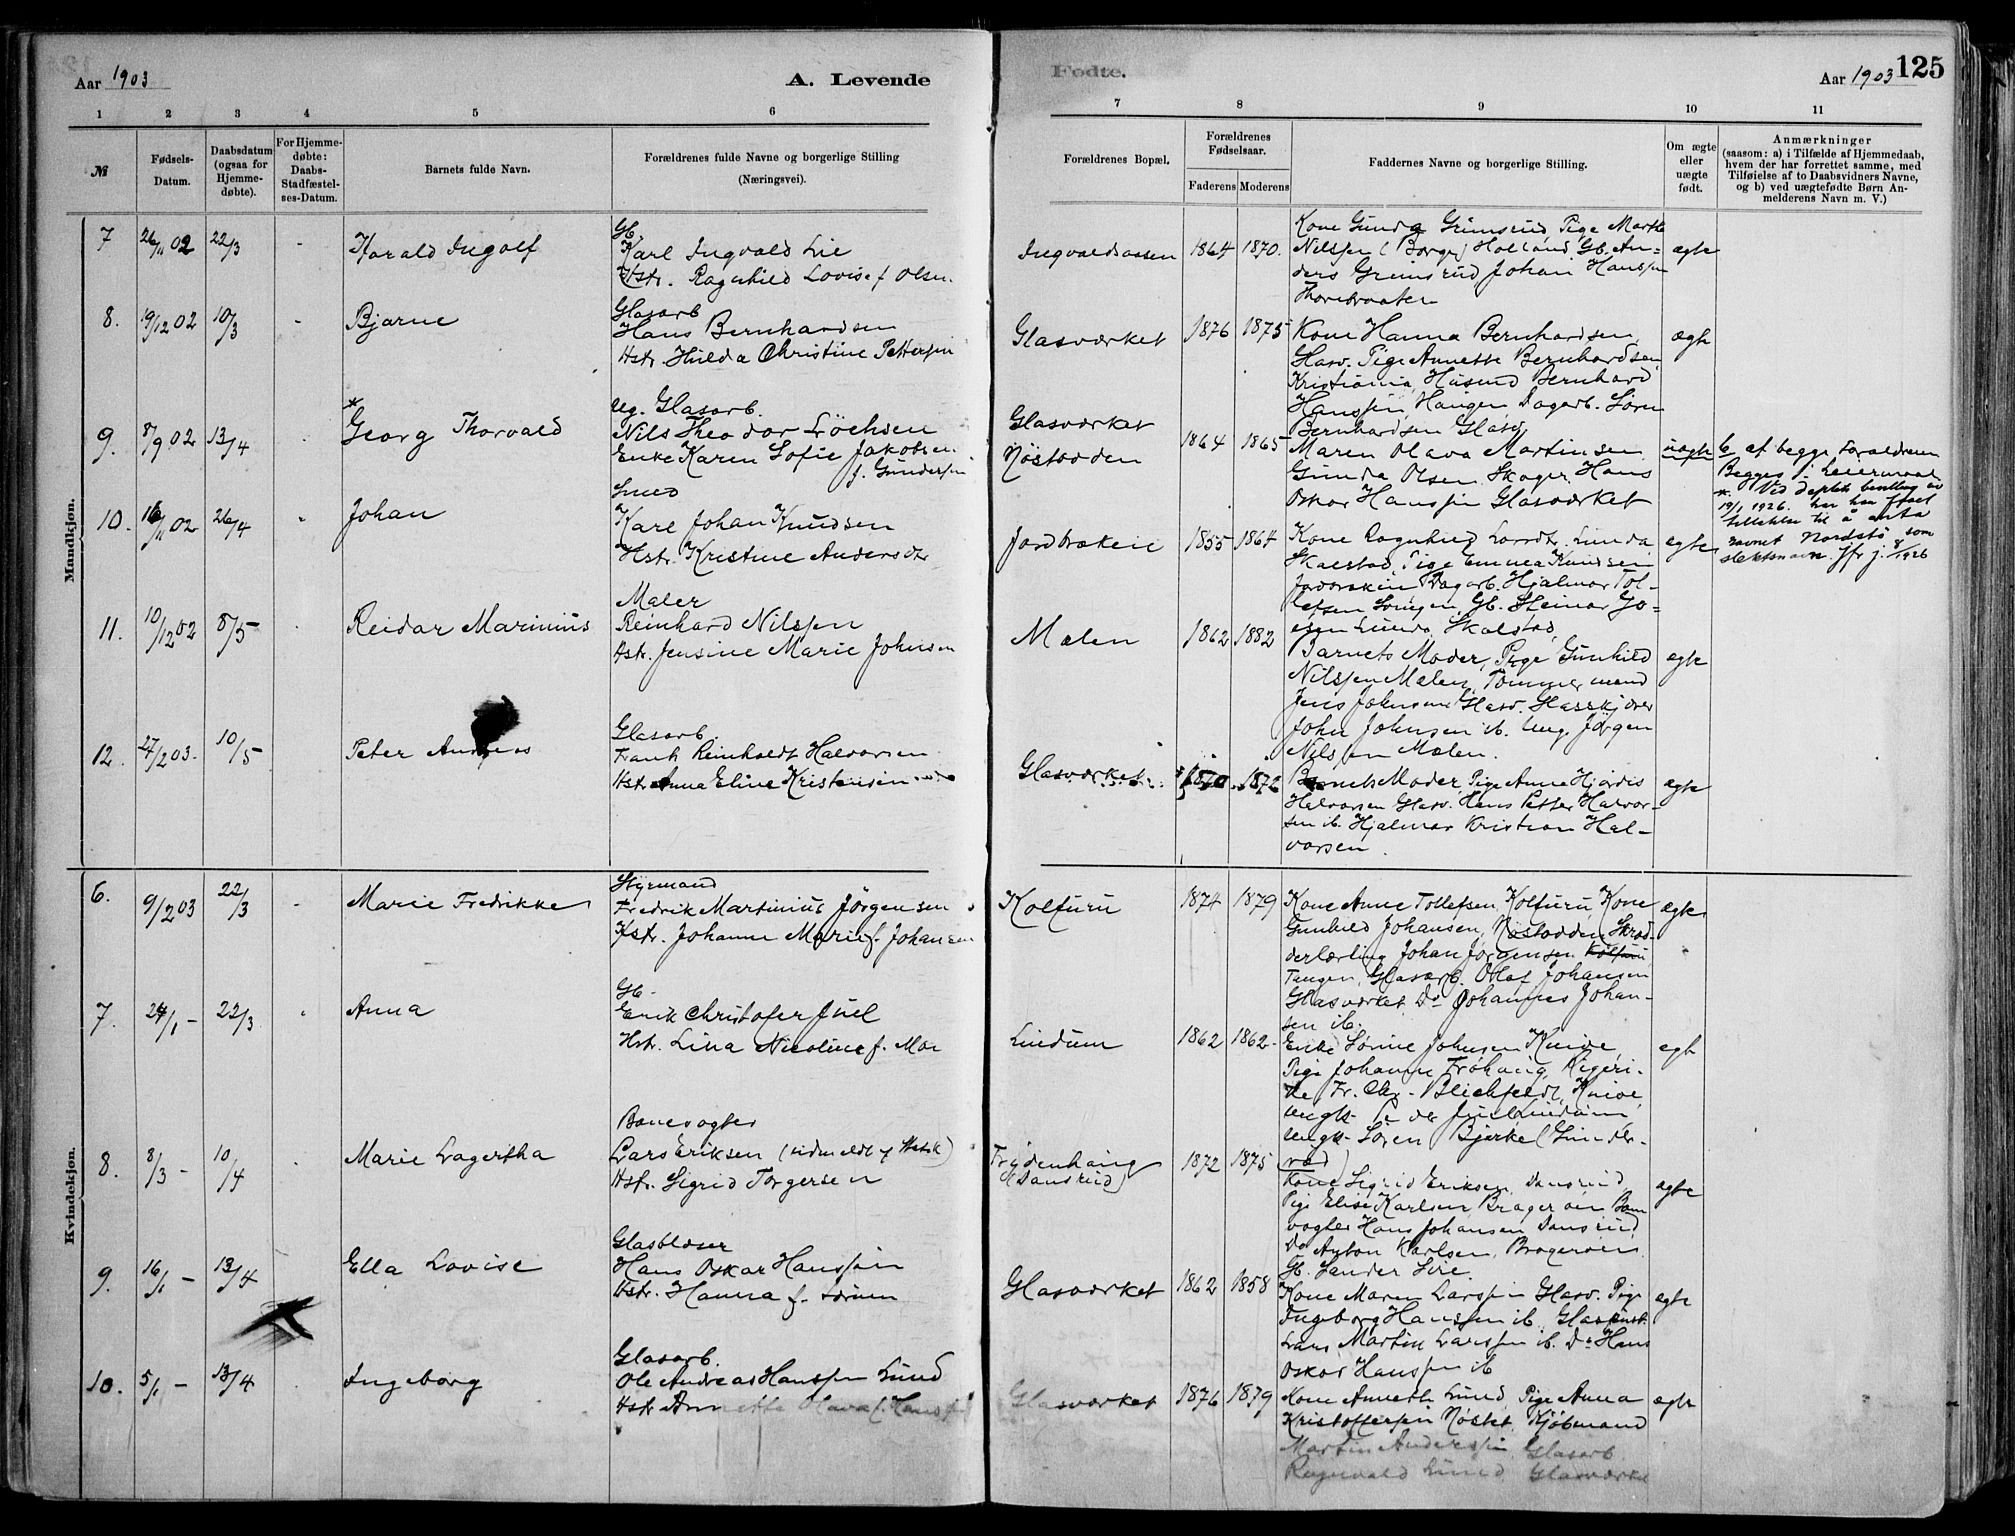 Aar 1903
A. Levende
Fødte.
Aar 1903
125
1 2 3 4 5 6 7 8 9 10 11
№
Fødsels-
Datum.
Daabsdatum
(ogsaa for
Hjemme-
døbte).
For Hjemme-
døbte:
Daabs-
Stadfæstel-
ses-Datum.
Barnets fulde Navn.
Forældrenes fulde Navne og borgerlige Stilling
(Næringsvei).
Forældrenes Bopæl.
Forældrenes
Fødselsaar.
Faderens Moderens
Faddernes Navne og borgerlige Stilling.
Om ægte
eller
uægte
født.
Anmærkninger
(saasom: a) i Tilfælde af Hjemmedaab,
hvem der har forrettet samme, med
Tilføielse af to Daabsvidners Navne,
og b) ved uægtefødte Børn An-
melderens Navn m. V.)
Mandkjøn.
7 26/11 02 22/3 - Harald Ingolf
Gb.
Karl Ingvald Lie
Hstr. Ragnhild Lovise f. Olsen
Ingvaldsaasen 1864 1870.
Kone Gunda Grimsrud, Pige Marthe
Nilssen (Borge) Holland, Gb. An-
ders Grimsrud Johan Hanssen
Thorebraaten
ægte
8. 19/12 02 10/3 - Bjarne
Glasarb
Hans Bernhardsen
Hstr. Hulda Christine Pettersen
Glasværket 1876 1875
Kone Hanna Bernhardsen,
Glasv. Pige Annette Bernhardsen,
Kristiania, Husmd Bernhard
Hanssen, Haugen, Dagarb. Søren
Bernhardsen Glasv
ægte
9. 8/9 02 13/4 Georg Thorvald *
Ug. Glasarb.
Nils Theodor Løchsen
Enke Karen Sofie Jakobsen
f. Gundersen
Glasværket
Nøstodden 1864 1865
Maren Olava Martinsen
Gunda Olsen, Skoger, Hans
Oskar Hanssen Glasværket
uægte
6 af begge Forældrene
Begges 1 Leiermaal
* Ved deptets bevilling av
19/1 1926. har han faaet
tillatelse til å anta
navnet Nordstø som
slektsnavn. Jfr j. 8/1926
10. 16/11 02 26/4 Johan
Smed
Karl Johan Knudsen
Hstr. Kristine Andersdtr
Jordbrækken 1855 1864
Kone Ragnhild Larsdtr. Linda
Skalstad, Pige Emma Knudsen
Dagarb. Hjalmar Tol-
lefsen Gb. Steinar Jo-
Skalstad
ægte
11. 10/12 02 8/5 - Reidar Marinius
Maler
Reinhard Nilssen
Hstr. Jensine Marie Johnsen
Mælen 1862 1882
Barnets Moder, Pige Gunhild
Nilssen Mælen, Tømmermand
Jens Johnsen, Glasv.
John Johnsen ib. Ung. Jørgen
Nilssen Mælen.
ægte
12. 27/2 03. 10/5 Peter Andreas
Glasarb.
Frank Reinholdt Halvorsen
Hstr Anna Eline Kristensen
Glasværket 1870 1872
Barnets Moder, Pige Anna Hjørdis
Halvorsen Glasv. Hans Petter Halvor-
sen ib. Hjalmar Kristian Hal-
vorsen.
ægte
Kvindekjøn.
6. 9/2 03 22/3 - Marie Fredrikke
Styrmand
Fredrik Martinius Jørgensen
Hstr. Johanne Marie f. Johansen
Kolfuru 1874 1879
Kone Anne Tollefsen, Kolfuru, Kone
Gunhild Johansen, Nøstodden, Skræd-
derlærling Johan Jørgensen Kolfuru
Tangen, Glasarb. Olaf Johansen
Glasværket Do Johannes Johan-
sen ib.
ægte
7. 24/1 - 22/3 Anna
Gb.
Erik Christofer Juel
Hstr. Lina Nicoline f. Moe
Lindum 1862 1862
Enke Sørine Johnsen Knive,
Pige Johanne Frøhaug, Kigeri-
Fr. Chr. Blichfeldt, Knive,
ungk. Peder Juel Lindum,
ungk. Søren Bjerke (Sunder-
rød)
ægte
8. 8/3 - 10/4 Marie Lagertha
Banevogter
Lars Eriksen (
Hstr. Sigrid Torgersen
Frydenhaug
(Dansrud) 1872 1875
Kone Sigrid Eriksen, Dansrud,
Pige Elise Karlsen, Bragerøen Ban-
vogter Hans Johansen Dansrud,
Do Anton Karlsen, Bragerøen.
Gb. Sander Lie.
ægte
9. 16/1 - 13/4 Ella Lovise
Glasblæser
Hans Oskar Hanssen
Hstr. Hanna f. Sørum
Glasværket 1862 1858
Kone Maren Larssen Glasv. Pige
Ingeborg Hanssen ib.
Lars Martin Larssen ib. Do Hans
Oskar Hanssen ib
ægte
10. 5/1 - 13/4 Ingeborg
Glasarb.
Ole Andreas Hanssen Lund
Hstr Annette Olava f. Hanssen
Glasværket 1876 1879
Kone Anneth Lund, Pige Anna
Kristoffersen Nøstet, Kjøbmand
Martin Anderssen, Glasarb
Ragnvald Lund, Glasværket
ægte